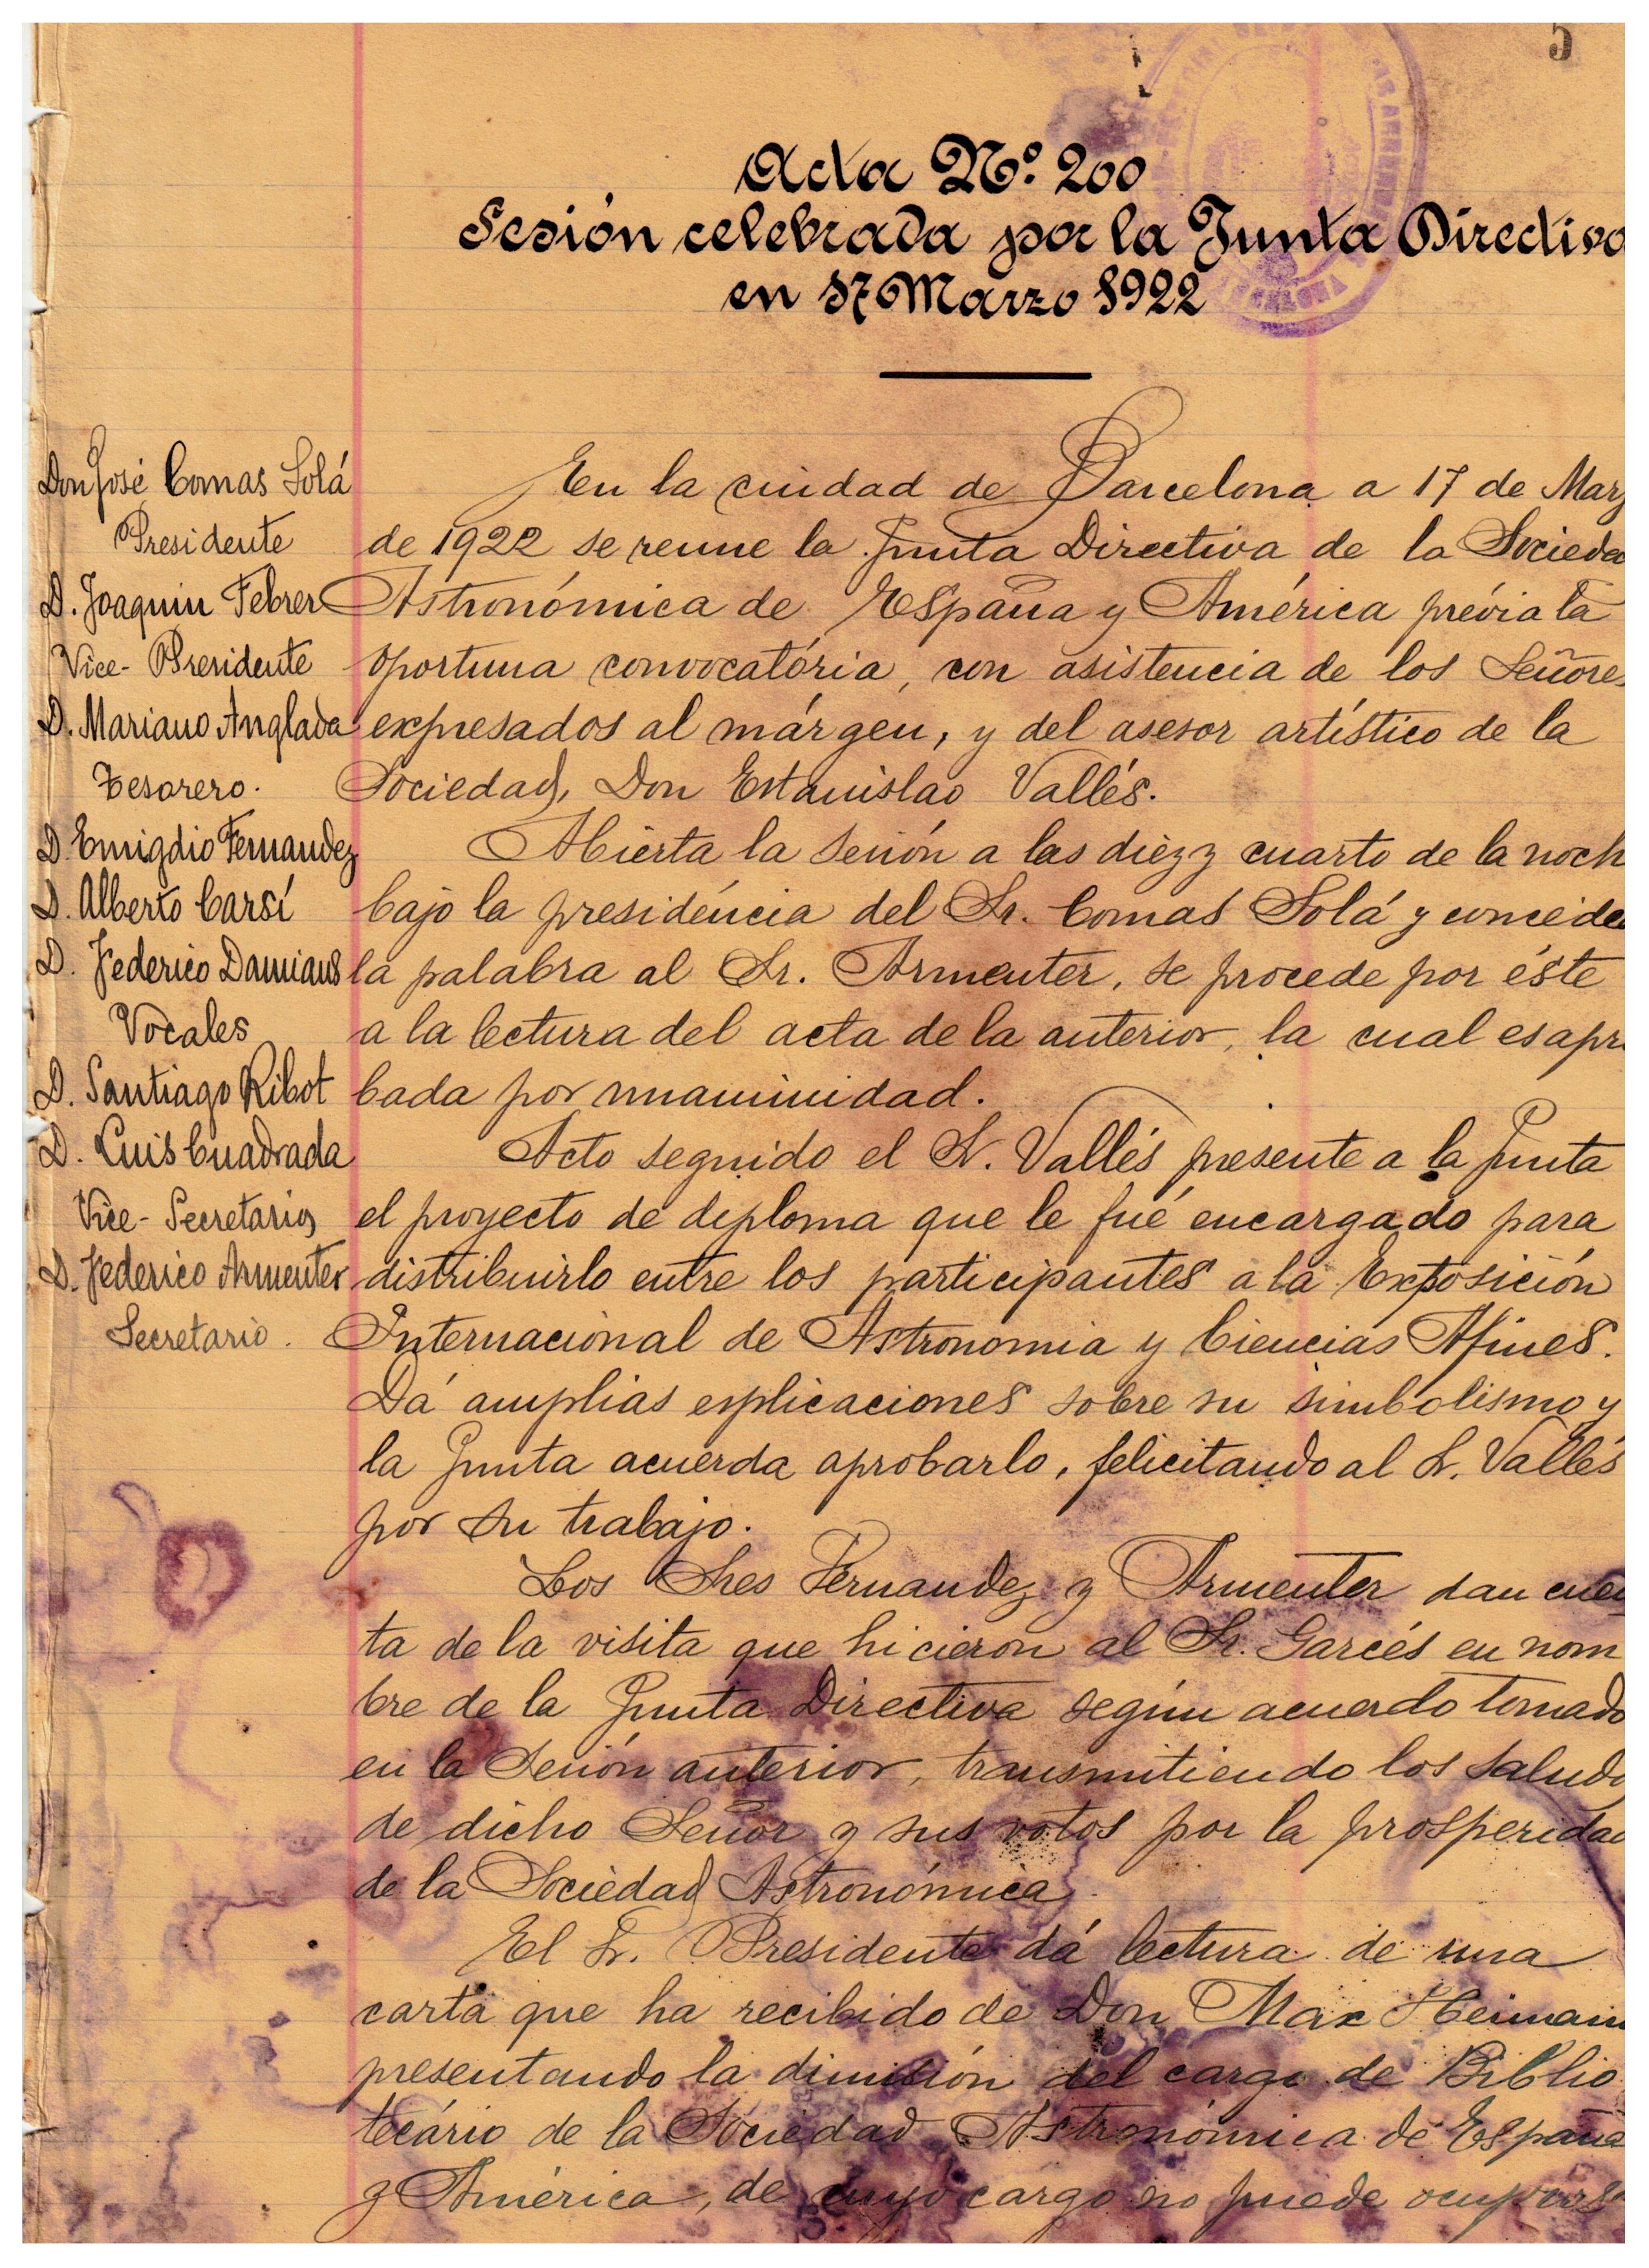 5
Acta Nº. 200
Sesión celebrada por la Junta Directiva
en 17 Marzo 1922
Don José Comas Solá
Presidente
D. Joaquin Febrer
Vice-Presidente
D. Mariano Anglada
Tesorero.
D. Emigdio Fernandez
D. Alberto Carsí
D. Federico Damians
Vocales
D. Santiago Ribot
D. Luis Cuadrada
Vice-Secretarios
D. Federico Armenter
Secretario.
En la ciudad de Barcelona a 17 de Marz
de 1922 se reune la Junta Directiva de la Socieda
Astronómica de España y América prévia la
oportuna convocatória, con asistencia de los Señores
expresados al márgen, y del asesor artístico de la
Sociedad, Don Estanislao Vallés.
Abierta la sesión a las diez y cuarto de la noch
bajo la presidéncia del Sr. Comas Solá y concede
la palabra al Sr. Armenter, se procede por éste
a la lectura del acta de la anterior, la cual es apro
bada por unaminidad.
Acto seguido el Sr. Vallés presente a la Junta
el proyecto de diploma que le fué encargado para
distribuirlo entre los participantes a la Exposición
Internacional de Astronomia y Ciencias Afines.
Dá amplias esplicaciones sobre su simbolismo y
la Junta acuerda aprobarlo, felicitando al Sr. Vallés
por su trabajo.
Los Sres Fernandez y Armenter dan cuen
ta de la visita que hicieron al Sr. Garcés en nom
bre de la Junta Directiva según acuerdo tomado
en la sesión anterior, transmitiendo los saludo
de dicho Señor y sus votos por la prosperidad
de la Sociedad Astronómica.
El Sr. Presidente dá lectura de una
carta que ha recibido de Don Max Heimann
presentando la dimisión del cargo de Biblio
tecário de la Sociedad Astronómica de España
y América, de cuyo cargo no puede ocupars